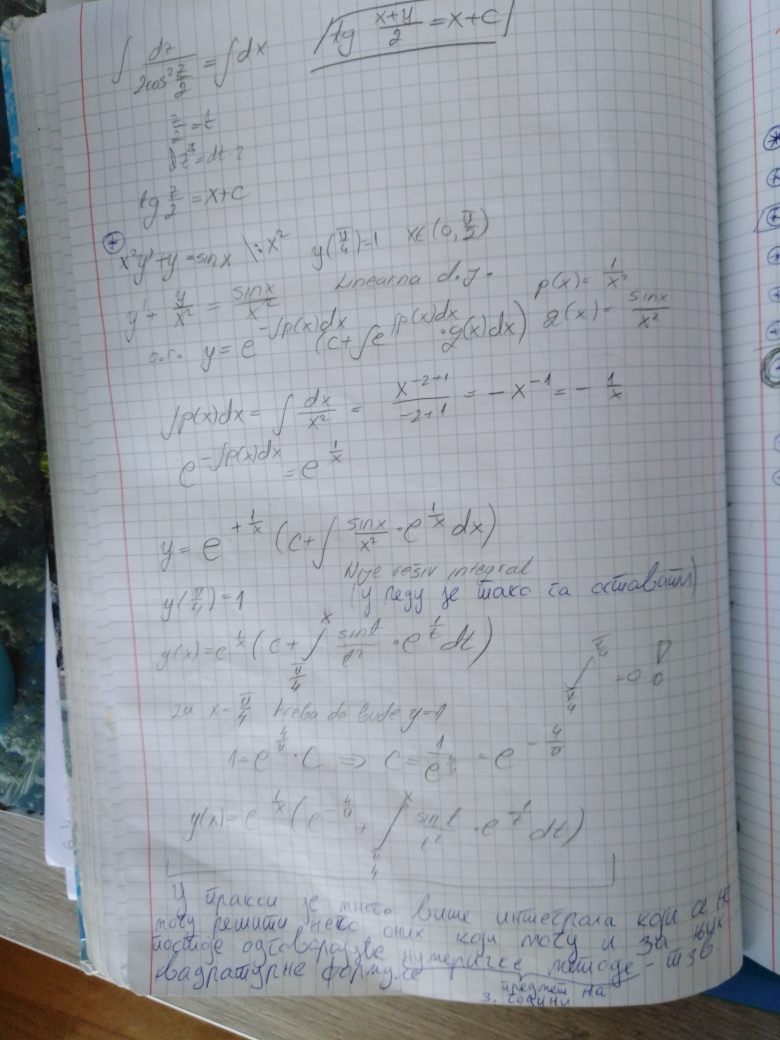 ∫ dz / (2cos² z/2) = ∫dx   tg (x+y)/2 = x+c
z/2 = t
dz = dt·2
tg z/2 = x+c
7 x²y' + y = sinx \: x²   y(π/4)=1   x∈(0, π/2)
y' + y/x² = sinx/x²   Linearna d.j.   p(x) = 1/x²
o.r. y = e^(-∫p(x)dx) (c+∫e^(∫p(x)dx) · g(x)dx)   g(x) = sinx/x²
∫p(x)dx = ∫ dx/x² = x^(-2+1)/(-2+1) = -x^(-1) = - 1/x
e^(-∫p(x)dx) = e^(1/x)
y = e^(+1/x) (c+∫ sinx/x² · e^(1/x) dx)
Nije rešiv integral
y(π/4)=1   (у реду је тако га оставити)
y(x) = e^(1/x) (c + ∫_(π/4)^x sint/t² · e^(1/t) dt)   ∫_(π/4)^(π/4) = 0
za x = π/4 treba da bude y=1
1 = e^(4/π) · c ⇒ c = 1/e^(4/π) = e^(-4/π)
y(x) = e^(1/x) (e^(-4/π) + ∫_(π/4)^x sint/t² · e^(1/t) dt)
У пракси је много више интеграла који се не
могу решити него оних који могу и за њих
постоје одговарајуће нумеричке методе - тзв
квадратурне формуле
предмет на
3. години